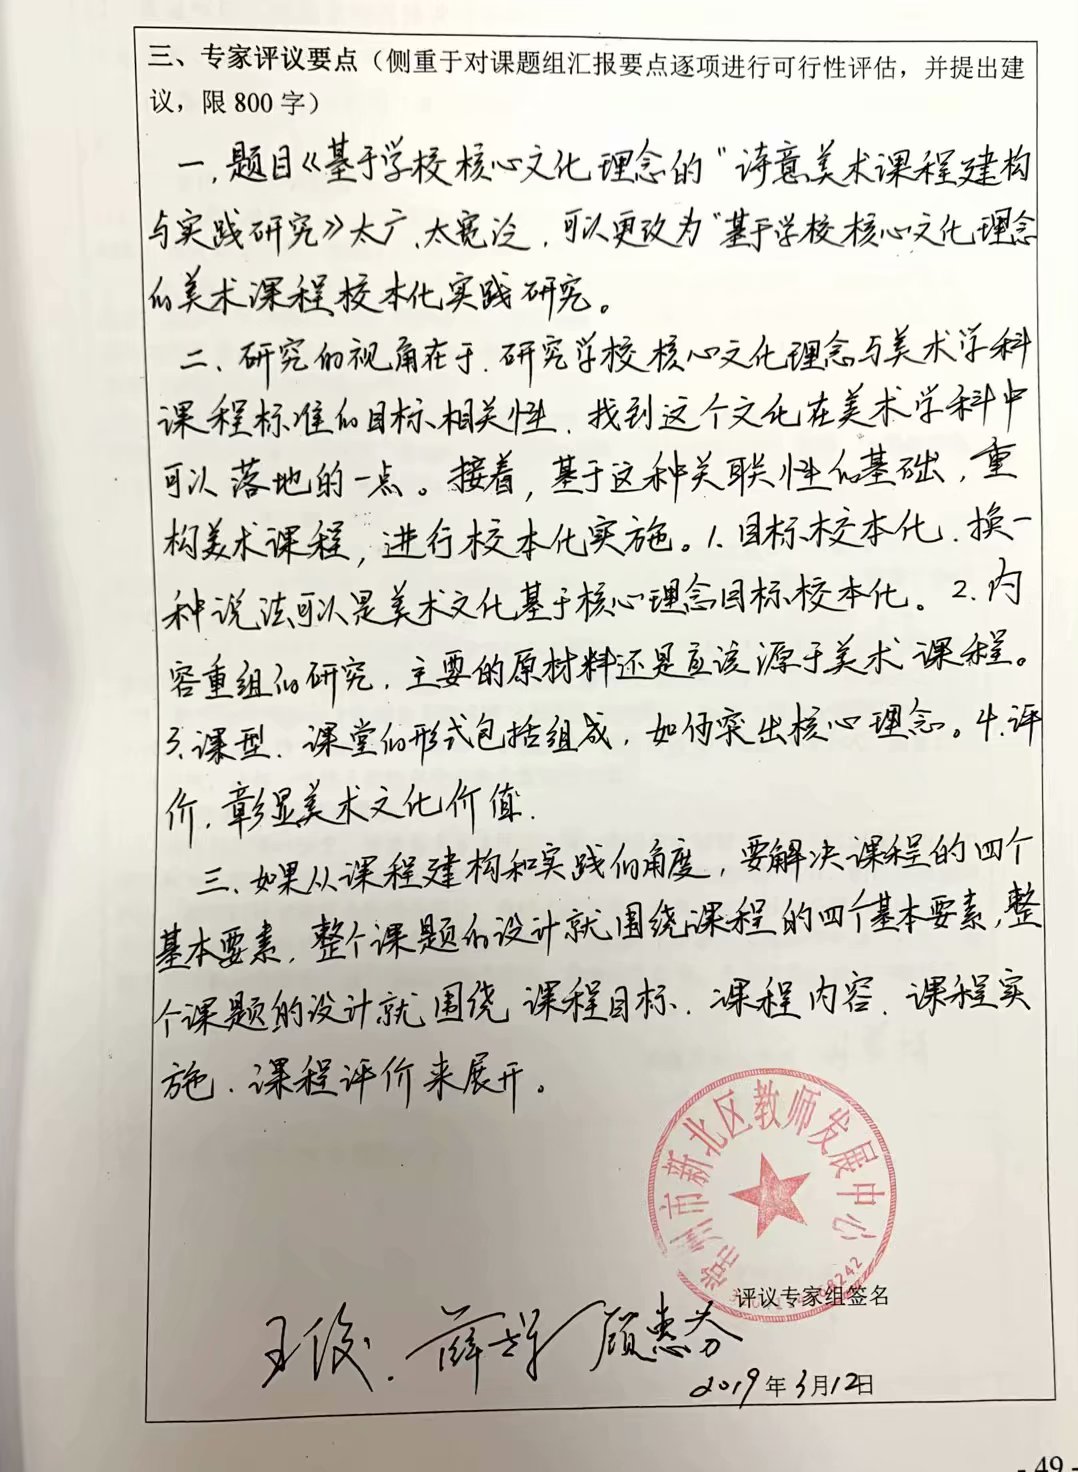 三、专家评议要点（侧重于对课题组汇报要点逐项进行可行性评估，并提出建
议，限 800 字）
一、题目《基于学校核心文化理念的“诗意美术课程建构
与实践研究》太广、太宽泛，可以更改为“基于学校核心文化理念
的美术课程校本化实践研究。
二、研究的视角在于，研究学校核心文化理念与美术学科
课程标准的目标相关性，找到这个文化在美术学科中
可以落地的一点。接着，基于这种关联性的基础，重
构美术课程，进行校本化实施。1、目标校本化，换一
种说法可以是美术文化基于核心理念目标校本化。2、内
容重组的研究，主要的原材料还是应该源于美术课程。
3、课型、课堂的形式包括组成，如何突出核心理念。4、评
价，彰显美术文化价值。
三、如果从课程建构和实践的角度，要解决课程的四个
基本要素，整个课题的设计就围绕课程的四个基本要素，整
个课题的设计就围绕课程目标、课程内容、课程实
施、课程评价来展开。
常州市新北区教师发展中心
评议专家组签名
王俊、顾惠芬
2019年3月12日
- 49 -